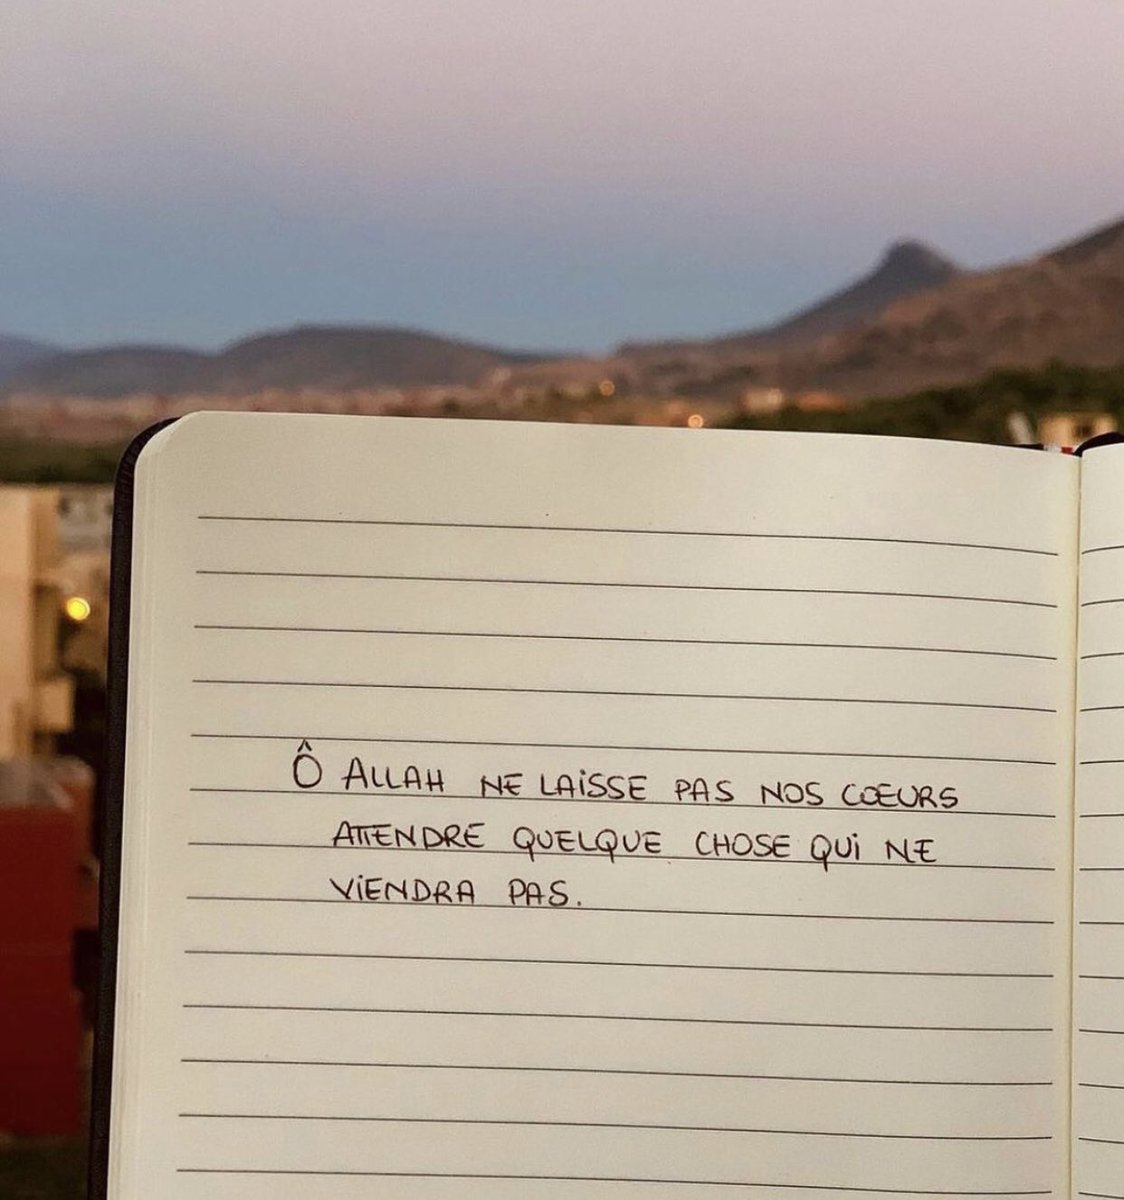 Ô ALLAH NE LAiSSE PAS NOS CŒURS
ATTENDRE QUELQUE CHOSE QUi NE
ViENDRA PAS.